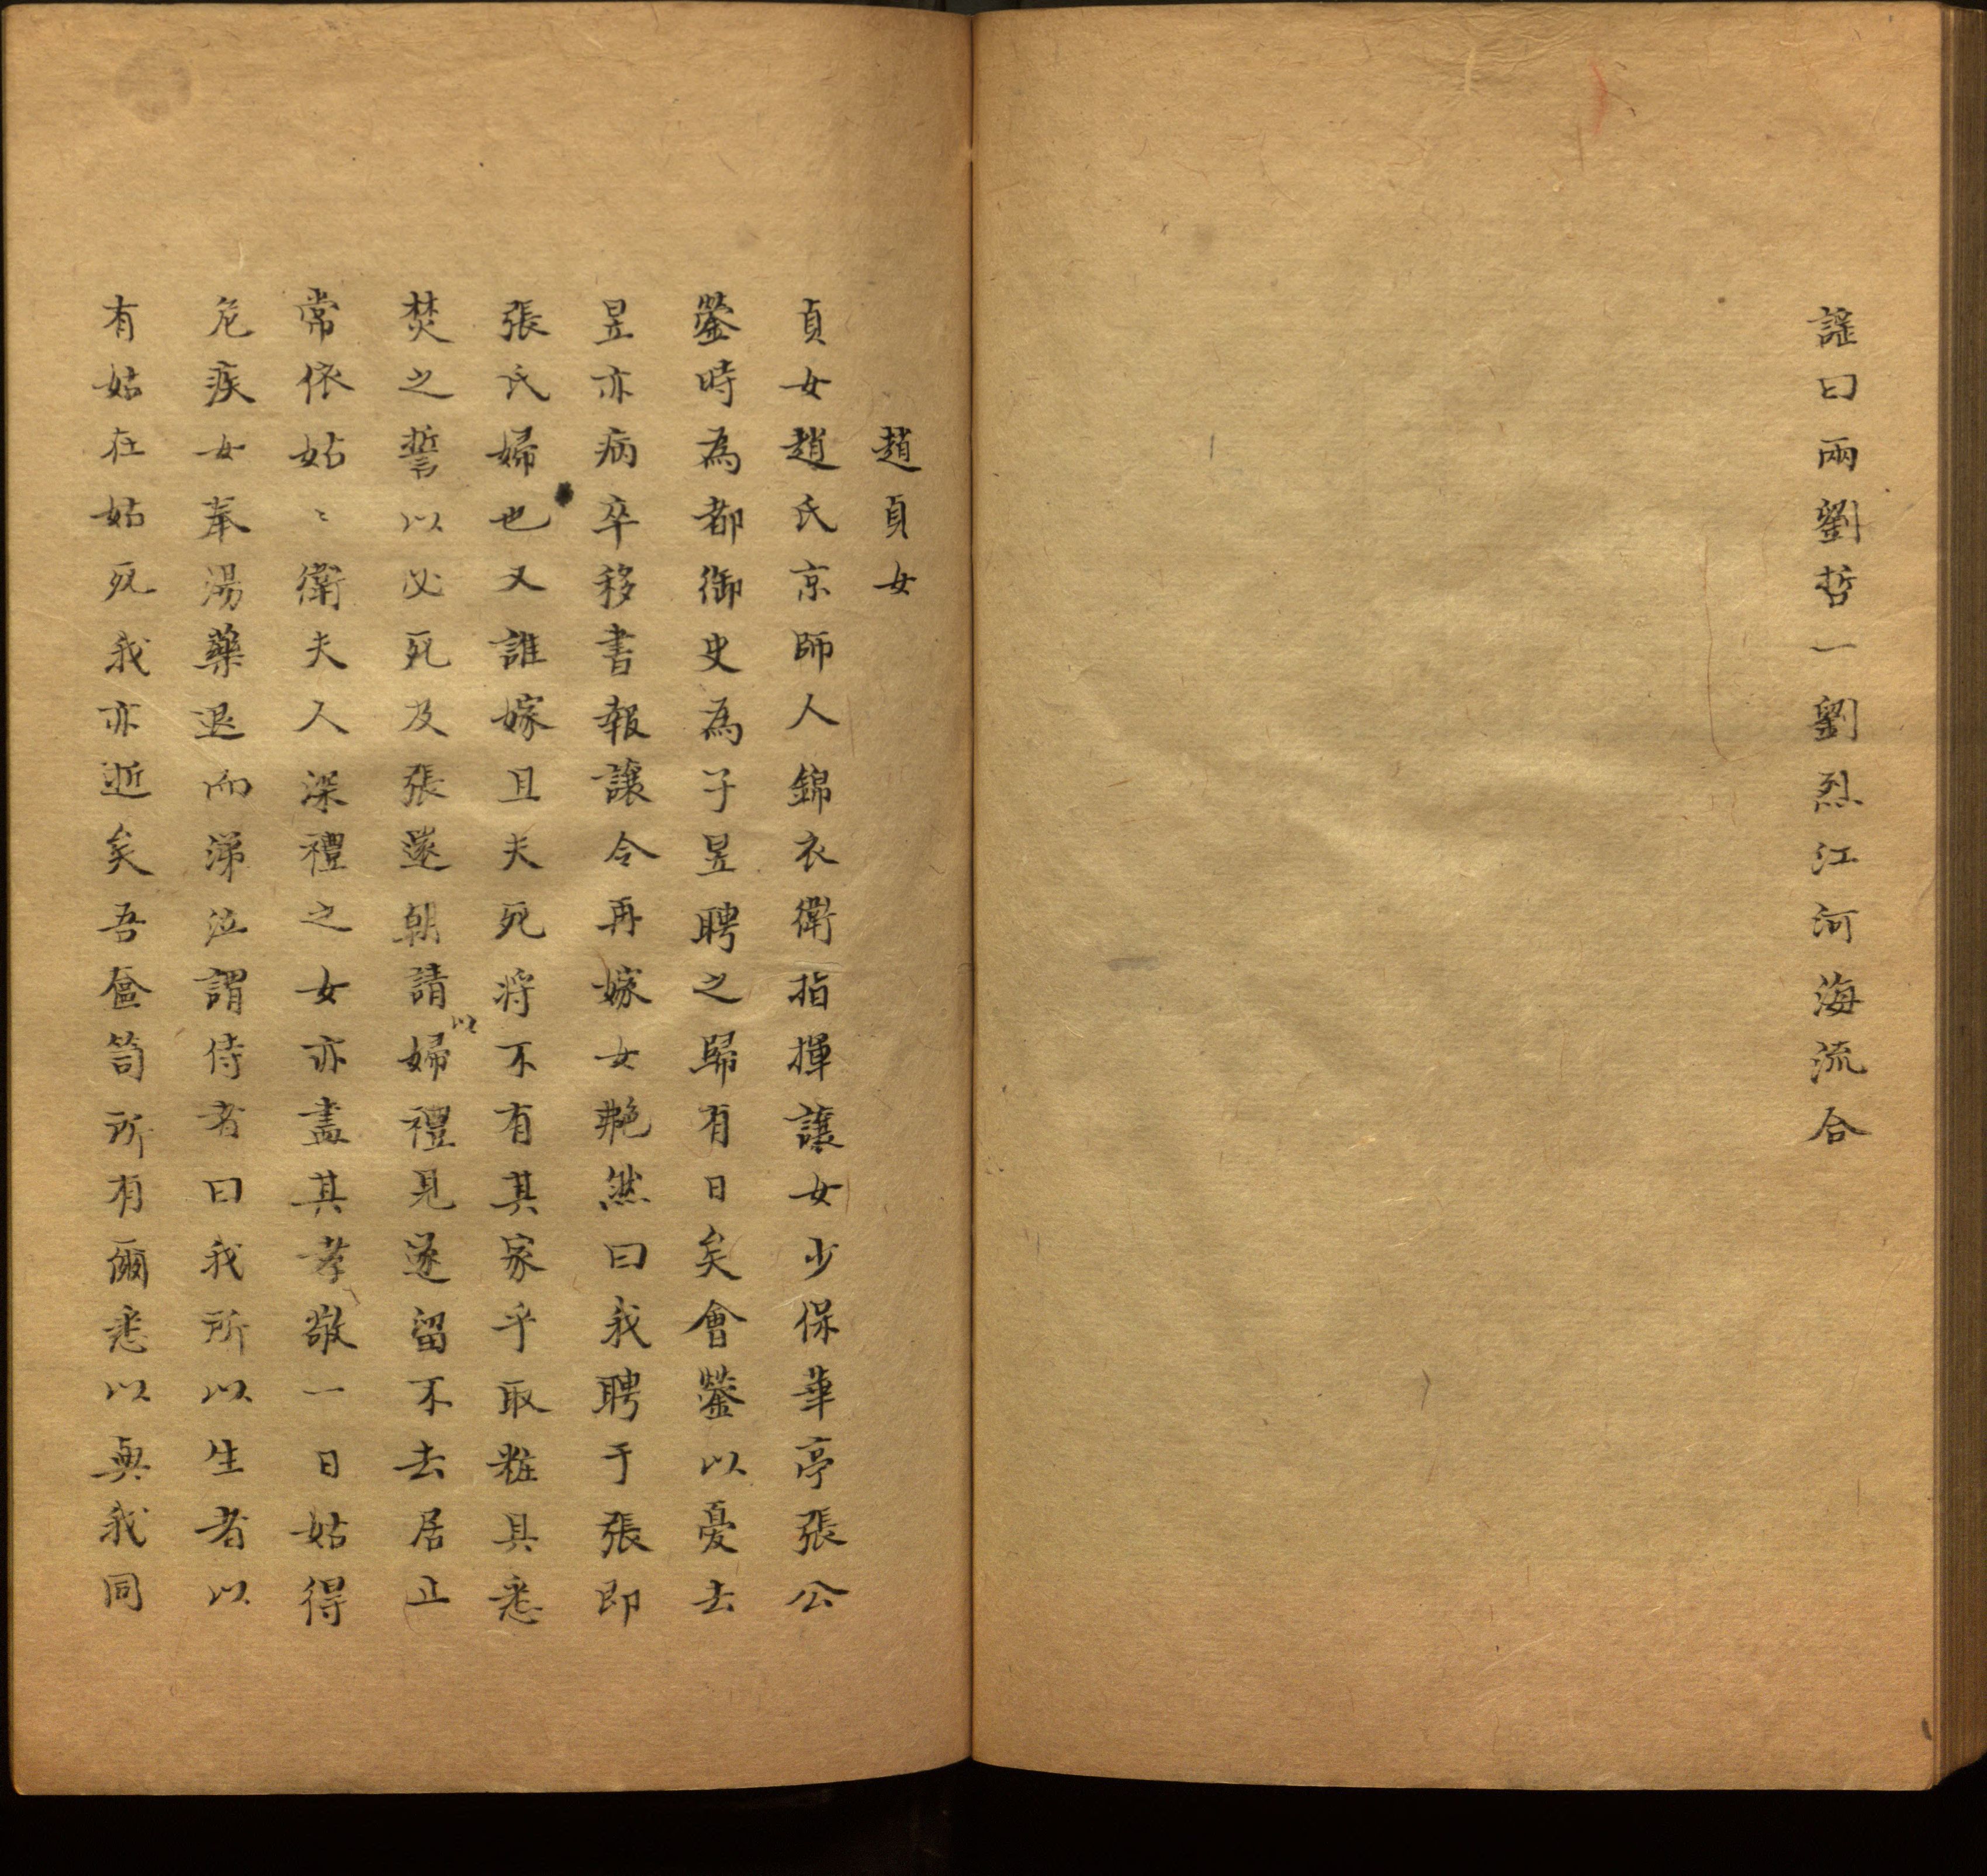 謡曰兩劉哲一劉烈江河海流合
趙貞女
貞女趙氏京師人錦衣衛指揮讓女少保華亭張公
鎣時為都御史為子昱聘之歸有日矣會鎣以憂去
昱亦病卒移書報讓令再嫁女艴然曰我聘于張即
張氏婦也又誰嫁且夫死將不有其家乎取粧具悉
焚之誓以必死及張還朝請以婦禮見遂留不去居止
常依姑〻衛夫人深禮之女亦盡其孝敬一日姑得
危疾女奉湯藥退而涕泣謂侍者曰我所以生者以
有姑在姑死我亦逝矣吾奩笥所有爾悉以與我同